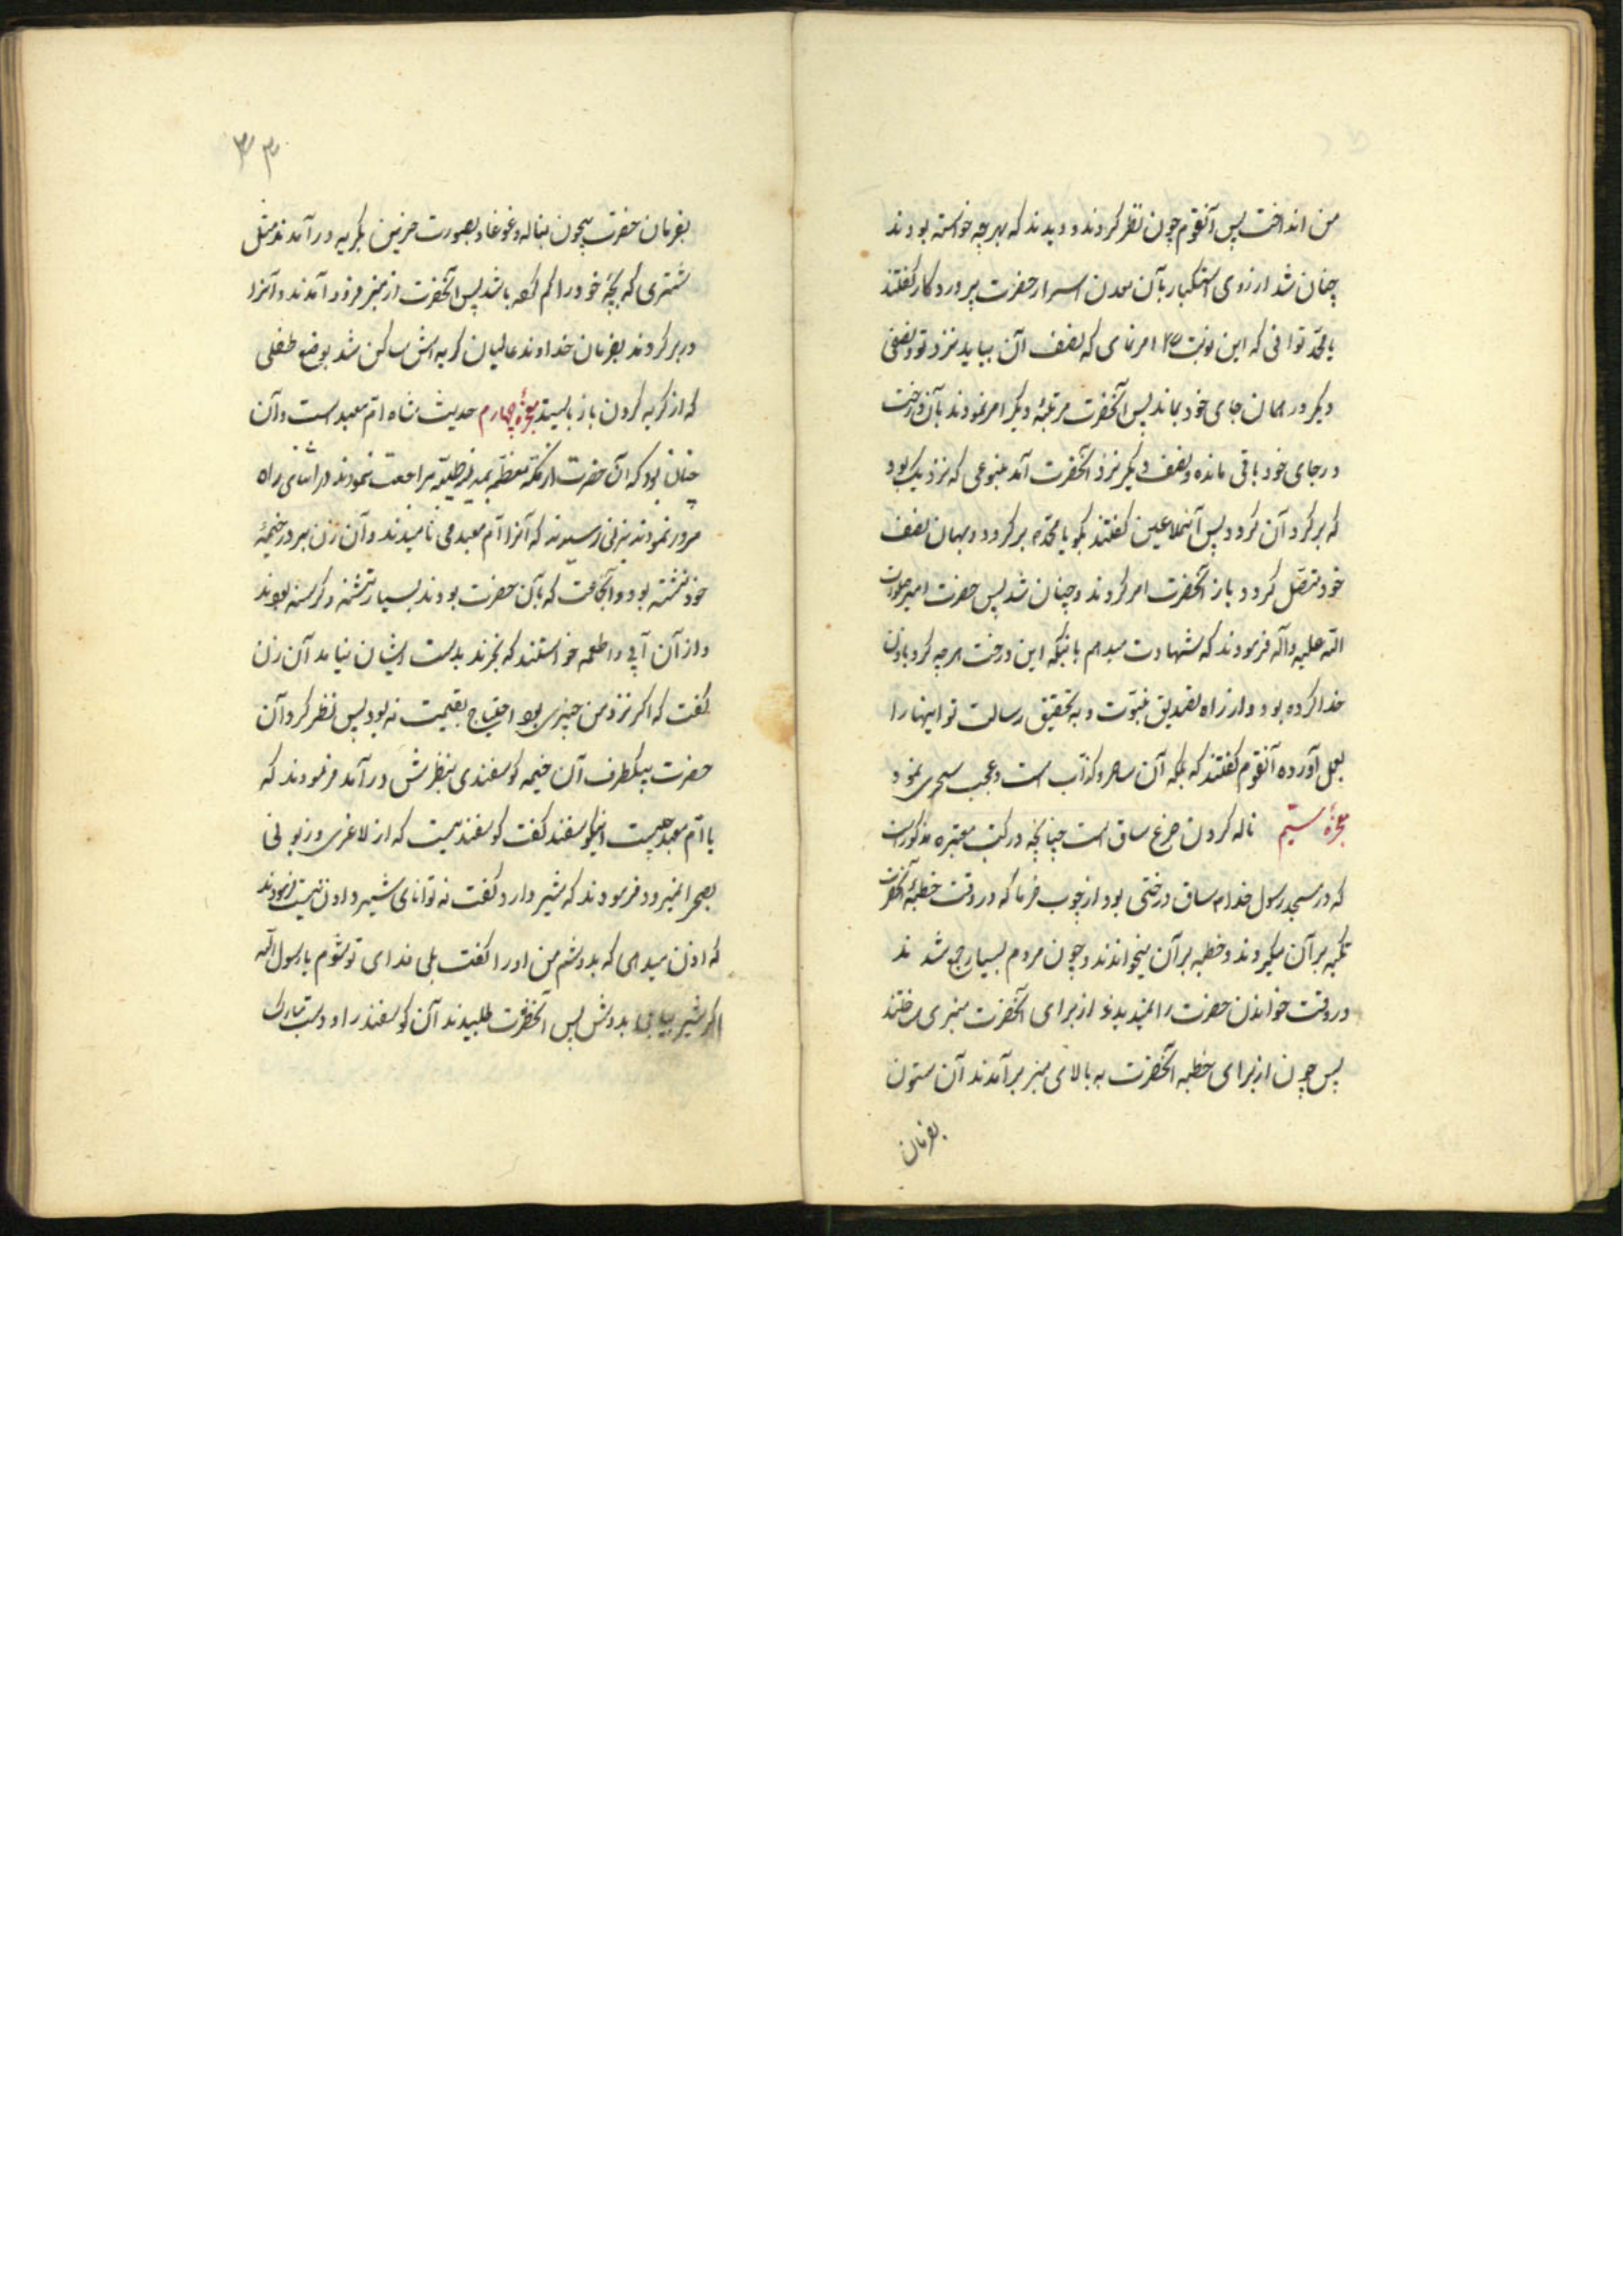 من انداخت پس آنقوم چون نظر کردند و دیدند که بهرچه خواسته بودند
چنان شد از روی استکبار بآن معدن اسرار حضرت پروردکار کفتند
یا محمد توانی که این نوبت امر نمای که نصف آن بیاید نزد تو و نصفی
دیکر در همان جای خود بماند پس آنحضرت مرتبهٔ دیکر امر نمودند بآن درخت
در جای خود باقی مانده و نصف دیکر نزد آنحضرت آمد بنوعی که نزدیک بود
که برکرد آن کردد پس آنملاعین کفتند بکو یا محمد برکردد و بهمان نصف
خود متصل کردد باز آنحضرت امر کردند و چنان شد پس حضرت امیر صلوات
الله علیه و آله فرمودند که شهادت میدهم بانیکه این درخت هرچه کرد باذن
خدا کرده بود و از راه تصدیق نبوت و به تحقیق رسالت تو اینها را
بعمل آورده آنقوم کفتند که بلکه آن ساحر و کذاب است و عجب سحری نمود
معجزهٔ سیم ناله کردن جزع ساق است چنانچه در کتب معتبره مذکور است
که در مسجد رسول خدا ساق درختی بود از چوب خرما که در وقت خطبه آنحضرت
تکیه بر آن میکردند و خطبه بر آن میخواندند و چون مردم بسیار جمع شدند
در وقت خواندن حضرت را نمیدیدند از برای آنحضرت منبری ساختند
پس چون از برای خطبه آنحضرت به بالای منبر برآمدند آن ستون
بفرمان
۳۳
بفرمان حضرت بیچون بناله و غوغا و بصورت حزین بکریه درآمدند مثل
شتری که بچهٔ خود را کم کرده باشد پس آنحضرت از منبر فرود آمدند و آنرا
در بر کردند بفرمان خداوند عالمیان کریه اش ساکن شد بوضع طفلی
که از کریه کردن باز بایستد معجزهٔ چهارم حدیث شاه ام معبد است و آن
چنان بود که آن حضرت از مکه معظمه بمدینه طیبه مراجعت نمودند در اثنای راه
مرور نمودند بزنی رسیدند که آنرا ام معبد می نامیدند و آن زن بر در خیمهٔ
خود نشسته بود و آنجماعت که بآن حضرت بودند بسیار تشنه و کرسنه بودند
و از آن آبی و اطعمه خواستند که بخرند بدست ایشان نیامد آن زن
کفت که اکر نزد من چیزی بود احتیاج بقیمت نه بود پس نظر کرد آن
حضرت بیکطرف آن خیمه کوسفندی بنظرش درآمد فرمودند که
یا ام معبد چیست اینکوسفند کفت کوسفندیست که از لاغری و زبونی
بصحرا نمیرود فرمودند که شیر دارد کفت نه توانای شیر دادن نیست فرمودند
که اذن میدهی که بدوشم من او را کفت بلی فدای تو شوم یا رسول الله
اکر شیر بیابی بدوش پس آنحضرت طلبیدند آن کوسفند را و دست مبارک